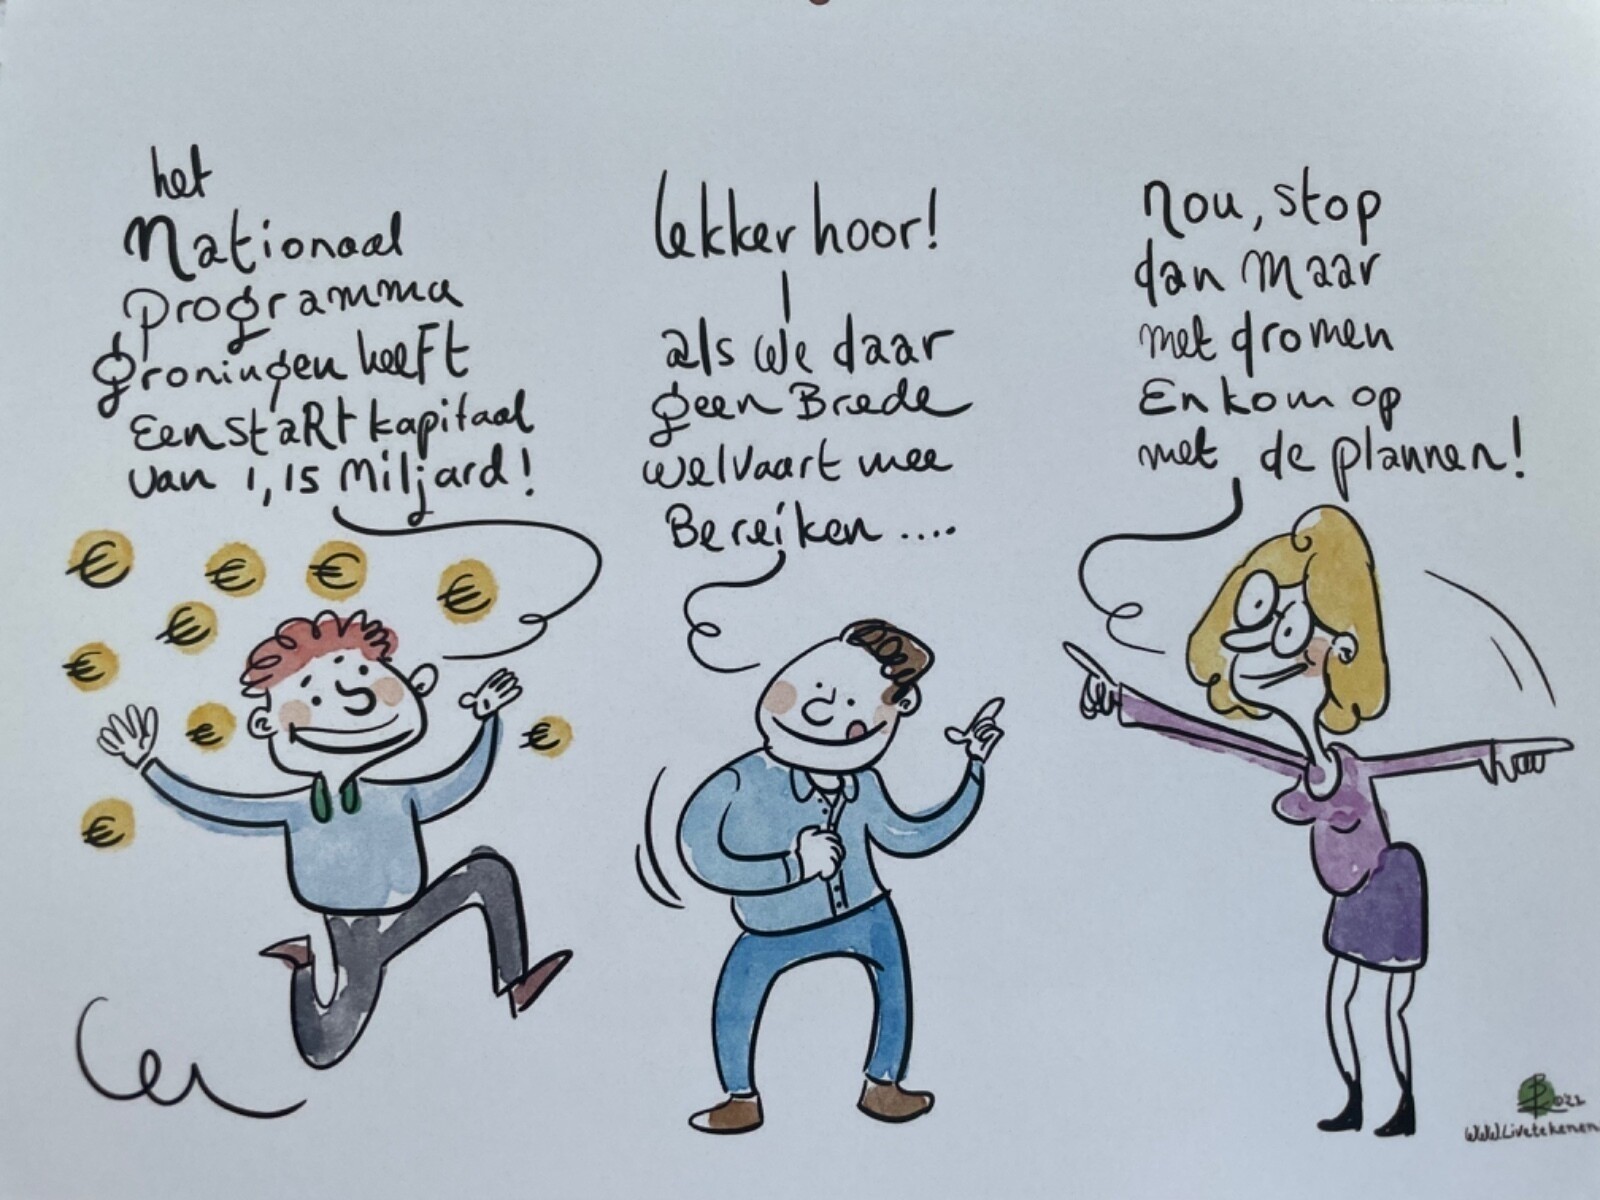 het
Nationaal
programma
Groningen heeft
Een staRt kapitaal
van 1,15 Miljard!
lekker hoor!
als we daar
geen Brede
welvaart mee
Bereiken ....
Nou, stop
dan Maar
met dromen
En kom op
met de plannen!
€
€
€
€
€
€
€
€
€
www.livetekenen